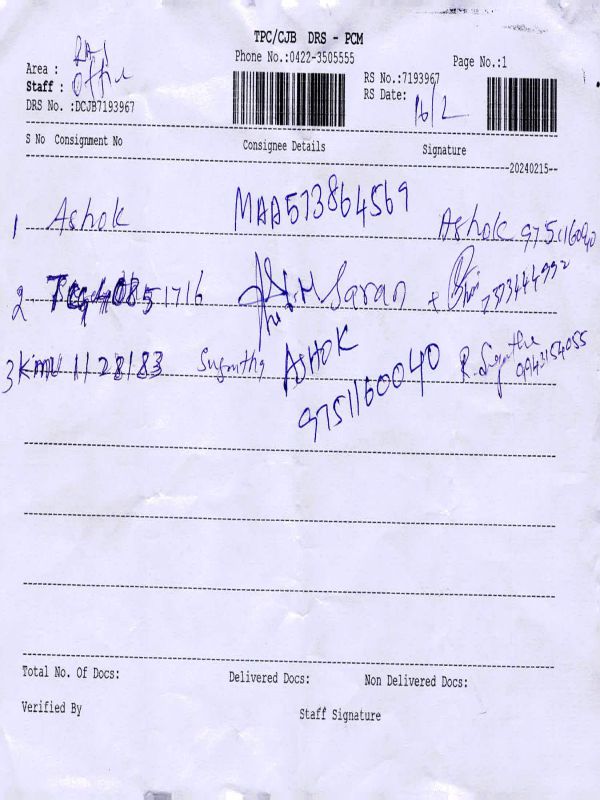 TPC/CJB DRS - PCM
Phone No.:0422-3505555
Page No.:1
Area :
Staff : Office
DRS No. :DCJB7193967
RS No.:7193967
RS Date: 16/2
S No Consignment No Consignee Details Signature
20240215
1 Ashok MAA573864569 Ashok 9751160040
2 51716 Saran
3 1128183 Sugantha ASHOK R. Sugantha 9943154055
9751160040
Total No. Of Docs: Delivered Docs: Non Delivered Docs:
Verified By Staff Signature